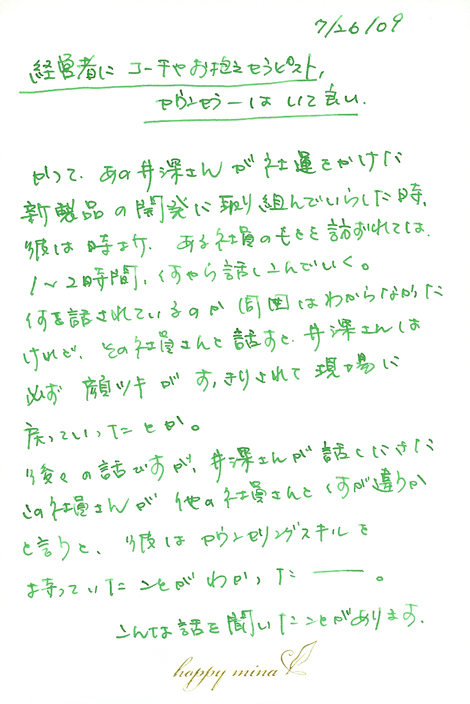 7/26/09
経営者に コーチやお抱えセラピスト,
カウンセラーはいて良い.
かつて、あの井深さんが社運をかけた
新製品の開発に取り組んでいらした時、
彼は時々、ある社員のもとを訪ずれては、
1〜2時間、何やら話し込んでいく。
何を話されているのか周囲はわからなかった
けれど、その社員さんと話すと、井深さんは
必ず 顔ツキが すっきりされて 現場に
戻っていったとか。
後々の話ですが、井深さんが話しにきた
この社員さんが 他の社員さんと何が違うか
と言うと、彼はカウンセリングスキルを
持っていた ことが わかった ——。
こんな話を聞いたことがあります.
happy mina